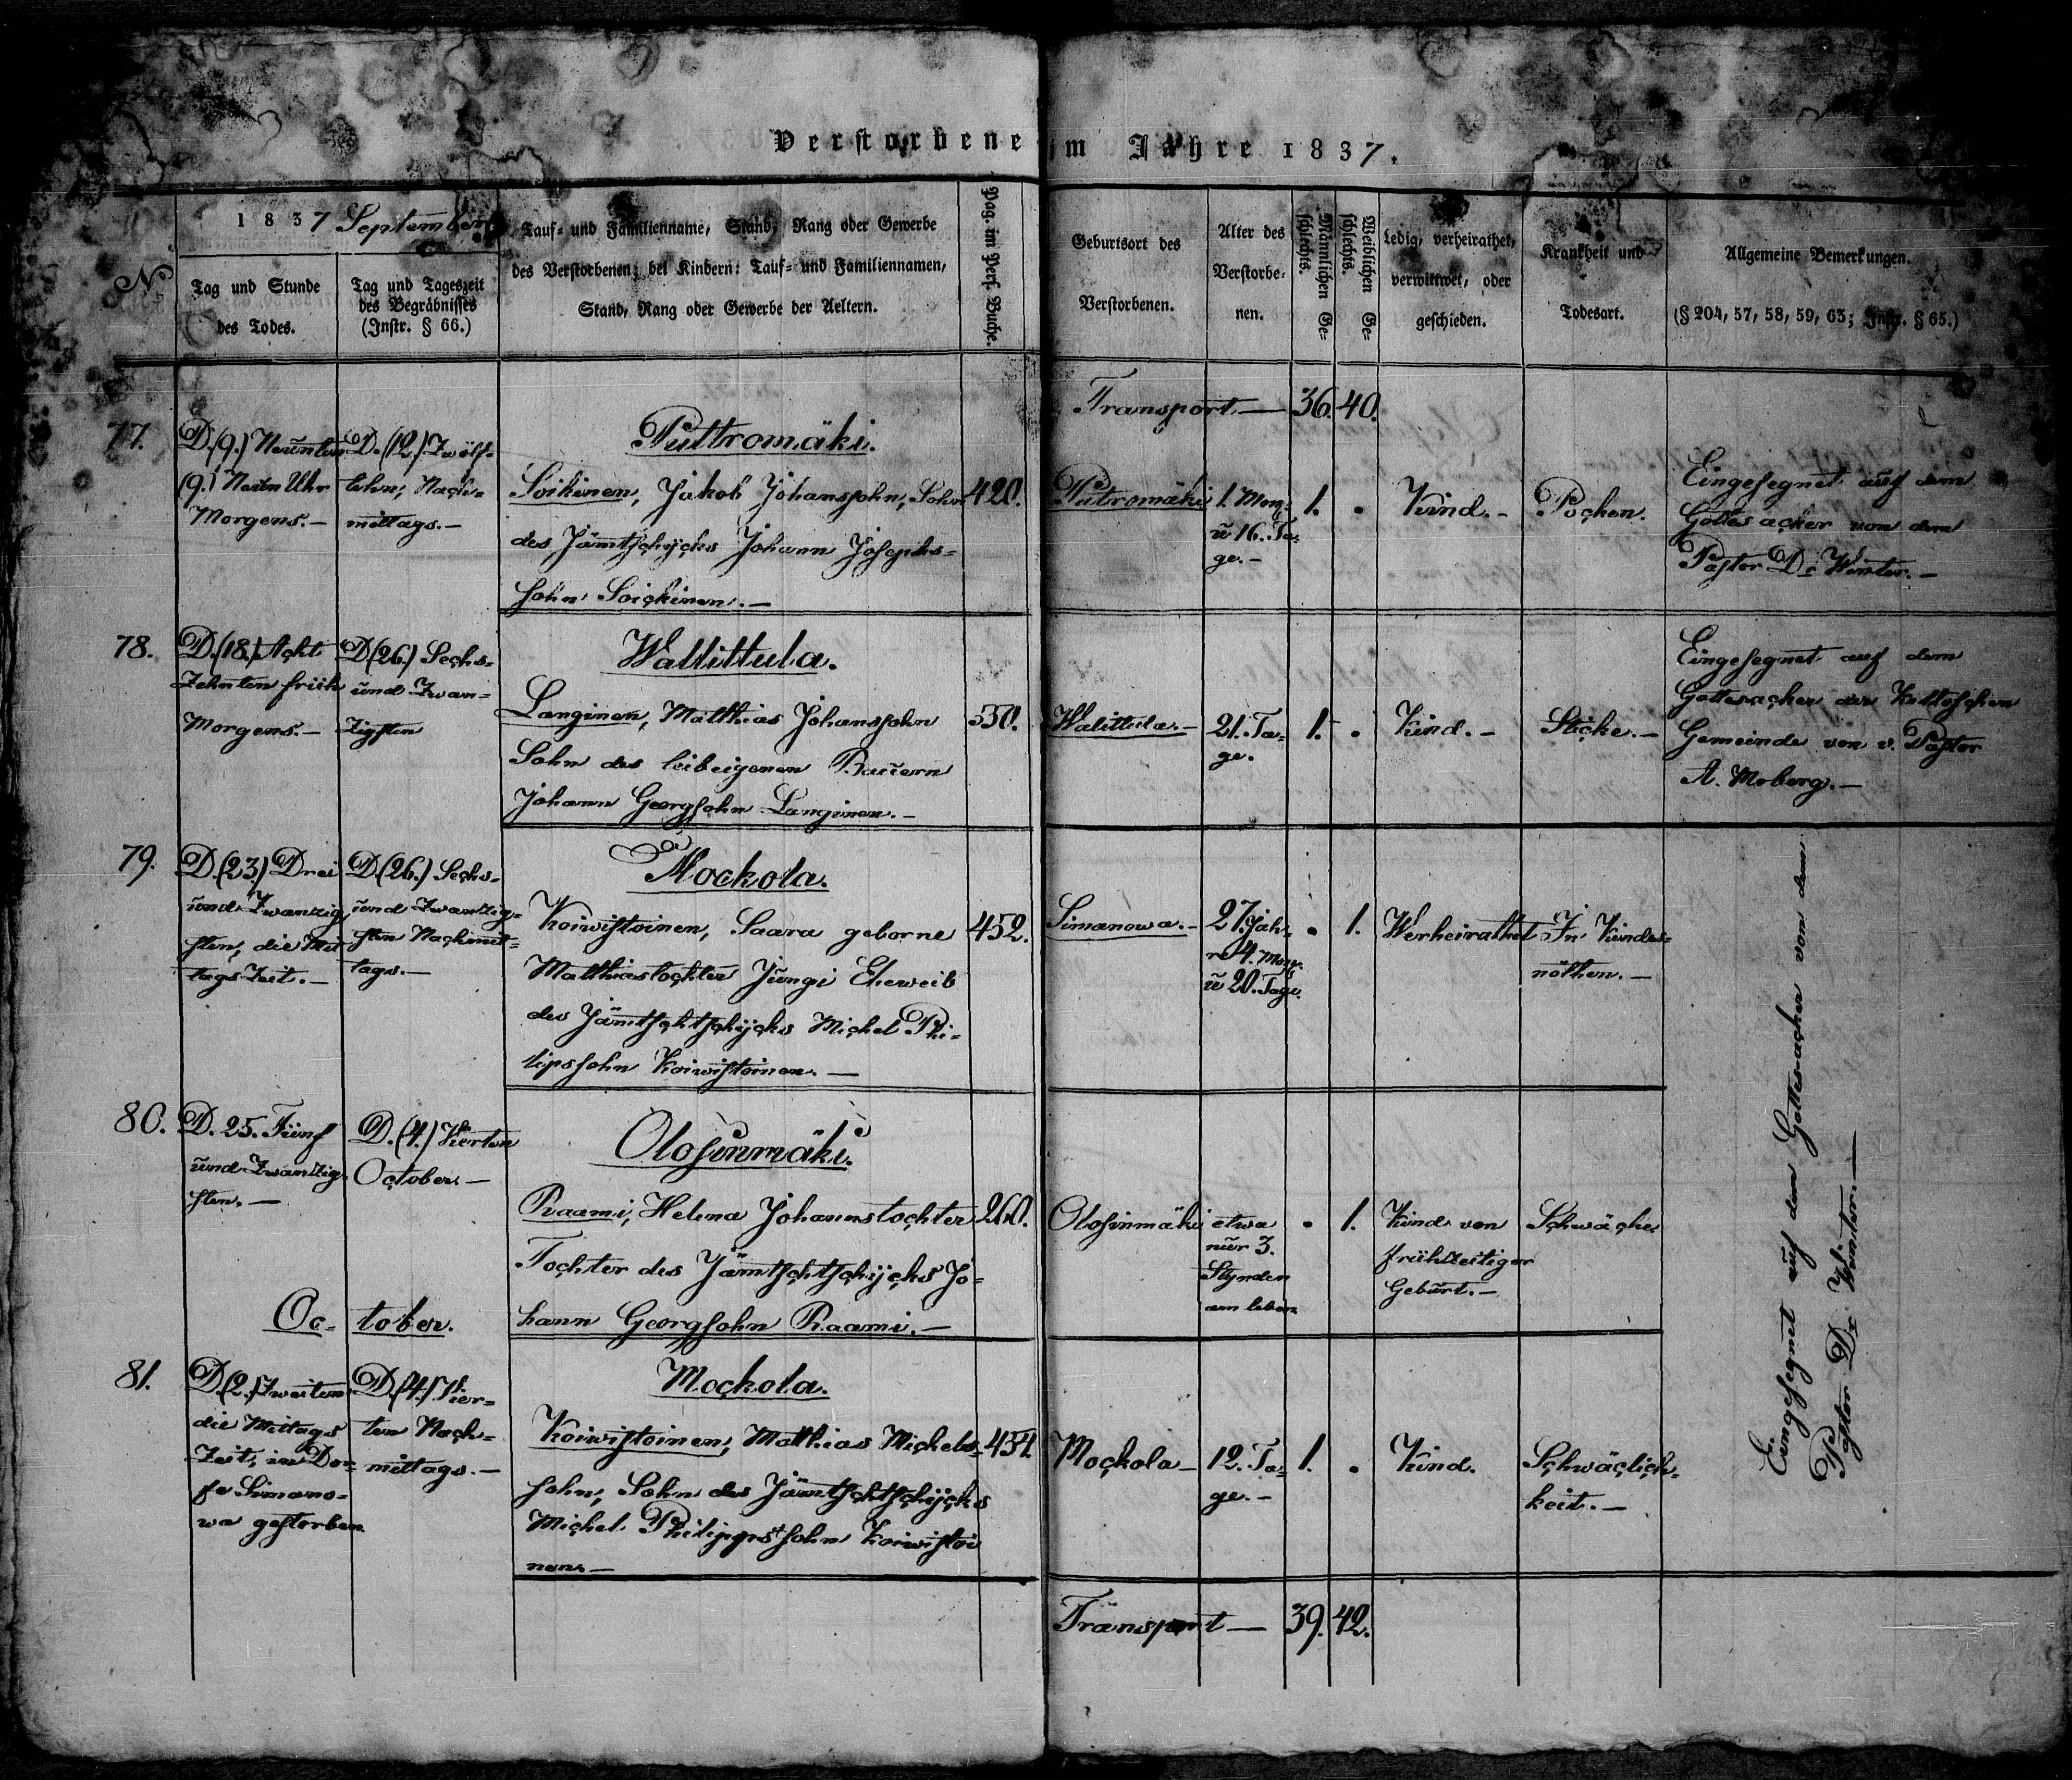 Verstorbene im Jahre 1837.
No
1837 September
Tag und Stunde
des Todes.
Tag und Tageszeit
des Begräbnisses
(Instr. § 66.)
Tauf- und Familienname, Stand, Rang oder Gewerbe
des Verstorbenen; bei Kindern: Tauf- und Familiennamen,
Stand, Rang oder Gewerbe der Aeltern.
Pag. im Pers. Buche.
Geburtsort des
Verstorbenen.
Alter des
Verstorbe-
nen.
Männlichen Ge-
schlechts.
Weiblichen Ge-
schlechts.
Ledig, verheirathet,
verwittwet, oder
geschieden.
Krankheit und
Todesart.
Allgemeine Bemerkungen.
(§ 204, 57, 58, 59, 63; Instr. § 65.)
Transport — 36. 40.
77.
D. (9.) Neunten
(9.) Neun Uhr
Morgens. —
D. (12.) Zwölf-
ten, Nach-
mittags. —
Puttromäki.
Soikinen, Jakob Johanssohn, Sohn
des Jämtschtschycks Johann Josephs-
sohn Soickinen. —
420.
Putromäki
1. Mon.
u 16. Ta-
ge. —
1.
Kind. —
Pocken.
Eingesegnet auf dem
Gottesacker von dem
Pastor Dr. Winter. —
78.
D. (18.) Acht-
zehnten früh
Morgens. —
D (26.) Sechs-
und Zwan-
zigsten
Wallittula.
Langinen, Matthias Johanssohn
Sohn des leibeigenen Bauern
Johann Georgsohn Langinen. —
330.
Walittula. —
21. Ta-
ge.
1.
Kind. —
Sticke. —
Eingesegnet auf dem
Gottesacker der Keltoschen
Gemeinde von v. Pastor
A. Moberg. —
79.
D. (23.) Drei
und Zwanzig-
sten, die Mit-
tags Zeit. —
D. (26.) Sechs-
und Zwanzig-
sten Nachmit-
tags. —
Mockola.
Koiwistoinen, Saara geborne
Matthiastochter Jungi Eheweib
des Jämtschtschycks Michel Phi-
lipssohn Koiwistoinen. —
452.
Simanowa. —
27. Jah-
re 4. Mon.
u 20. Tage.
1.
Werheirathet
In Kindes-
nöthen. —
80.
D. 25. Fünf
und Zwanzig-
sten. —
D. (4.) Vierten
October. —
Olosinmäki.
Raami, Helena Johannstochter
Tochter des Jämtschtschycks Jo-
hann Georgsohn Raami. —
260.
Olosinmäki
etwa
nur 3.
Stunden
am leben
1.
Kind von
frühzeitiger
Geburt. —
Schwäche
October.
81.
D. (2.) Zweiten
die Mittags
Zeit, in Dor-
fe Simano-
wa gestorben
D. (4.) Vier-
ten Nach-
mittags. —
Mockola.
Koiwistoinen, Matthias Michels-
sohn, Sohn des Jämtschtschycks
Michel Philippssohn Koiwistoi
nen. —
Mockola —
12. Ta-
ge. —
1.
Kind.
Schwächlich-
keit. —
Eingesegnet auf dem Gottesacker von dem
Pastor Dr. Winter. —
Transport — 39. 42.